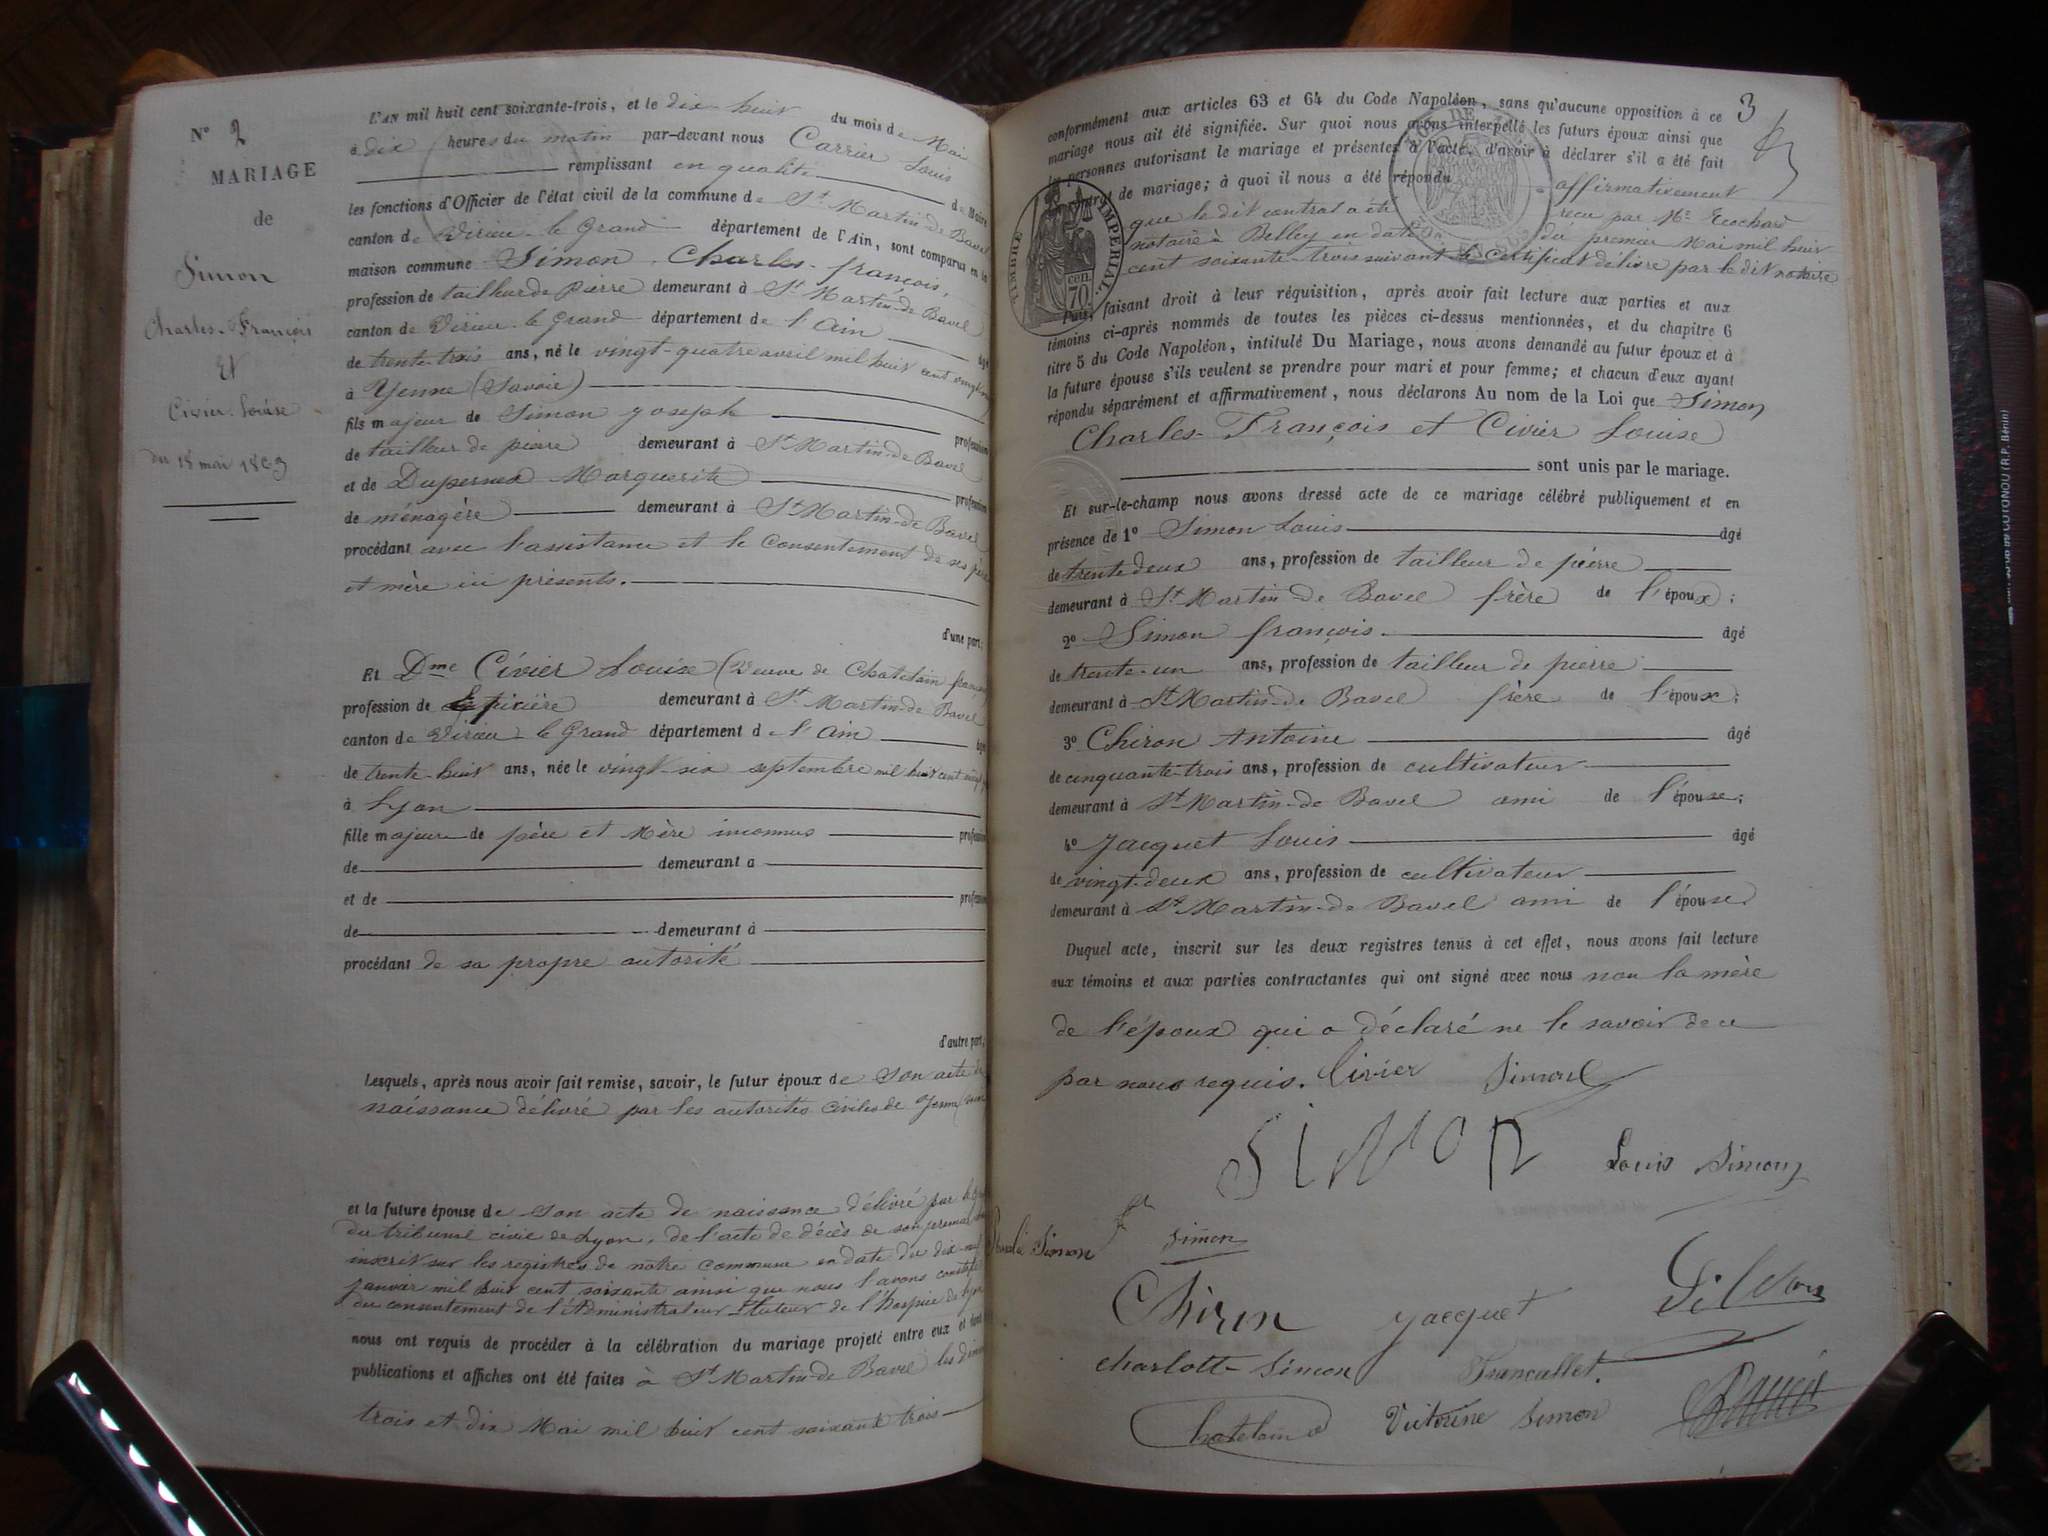 N° 2
MARIAGE
de
Simon
Charles-François
Et
Civier Louise
du 18 mai 1863
L'AN mil huit cent soixante-trois, et le dix-huit du mois de Mai
à dix heures du matin par-devant nous Carrier Louis
remplissant en qualité de Maire
les fonctions d'Officier de l'état civil de la commune de St Martin-de Bavel
canton de Virieu-le Grand département de l'Ain, sont comparus en la
maison commune Simon Charles-françois,
profession de tailleur de Pierre demeurant à St Martin-de Bavel
canton de Virieu-le Grand département de l'Ain âgé
de trente-trois ans, né le vingt-quatre avril mil huit cent vingt
à Yenne (Savoie)
fils majeur de Simon Joseph profession
de tailleur de pierre demeurant à St Martin-de Bavel
et de Marguerite profession
de ménagère demeurant à St Martin-de Bavel
procédant avec l'assistance et le Consentement de ses père
et mère ici présents.
d'une part;
Et Dme Civier Louise (Veuve de Chatelain françois
profession de Epicière demeurant à St Martin-de Bavel
canton de Virieu-le Grand département de l'Ain âgé
de trente-huit ans, née le vingt-six septembre mil huit cent vingt
à Lyon
fille majeure de père et Mère inconnus profession
de demeurant a
et de profession
de demeurant à
procédant de sa propre autorité
d'autre part;
Lesquels, après nous avoir fait remise, savoir, le futur époux de son acte de
naissance délivré par les autorités civiles de Yenne
et la future épouse de son acte de naissance délivré par le
du tribunal civil de Lyon, de l'acte de décès de son premier
inscrit sur les registres de notre commune en date du dix-neuf
janvier mil huit cent soixante ainsi que nous l'avons constaté
du consentement de l'Administrateur-tuteur de l'hospice de Lyon
nous ont requis de procéder à la célébration du mariage projeté entre eux et dont
publications et affiches ont été faites à St Martin-de Bavel les dimanches
trois et dix Mai mil huit cent soixante trois
3
conformément aux articles 63 et 64 du Code Napoléon, sans qu'aucune opposition à ce
mariage nous ait été signifiée. Sur quoi nous avons interpellé les futurs époux ainsi que
les personnes autorisant le mariage et présentes à l'acte, d'avoir à déclarer s'il a été fait
de mariage; à quoi il nous a été répondu affirmativement
que le dit contrat a été reçu par Me
notaire à Belley en date du premier Mai mil huit
cent soixante-trois suivant le certificat délivré par le dit notaire
TIMBRE IMPERIAL
70 cen.
Puis, faisant droit à leur réquisition, après avoir fait lecture aux parties et aux
témoins ci-après nommés de toutes les pièces ci-dessus mentionnées, et du chapitre 6
titre 5 du Code Napoléon, intitulé Du Mariage, nous avons demandé au futur époux et à
la future épouse s'ils veulent se prendre pour mari et pour femme; et chacun d'eux ayant
répondu séparément et affirmativement, nous déclarons Au nom de la Loi que Simon
Charles-François et Civier Louise
sont unis par le mariage.
Et sur-le-champ nous avons dressé acte de ce mariage célébré publiquement et en
présence de 1° Simon Louis âgé
de trente deux ans, profession de tailleur de pierre
demeurant à St Martin-de Bavel frère de l'époux;
2° Simon françois. âgé
de trente-un ans, profession de tailleur de pierre
demeurant à St Martin-de Bavel frère de l'époux;
3° Chiron Antoine âgé
de cinquante-trois ans, profession de cultivateur
demeurant à St Martin-de Bavel ami de l'épouse;
4° Jacquet Louis âgé
de vingt-deux ans, profession de cultivateur
demeurant à St Martin-de Bavel ami de l'épouse.
Duquel acte, inscrit sur les deux registres tenus à cet effet, nous avons fait lecture
aux témoins et aux parties contractantes qui ont signé avec nous non la mère
de l'époux qui a déclaré ne le savoir de ce
par nous requis. Civier Simon
SiMon Louis Simon
Simon Simon
Chiron Jacquet
Charlotte Simon Francallet.
Chatelain Victorine Simon